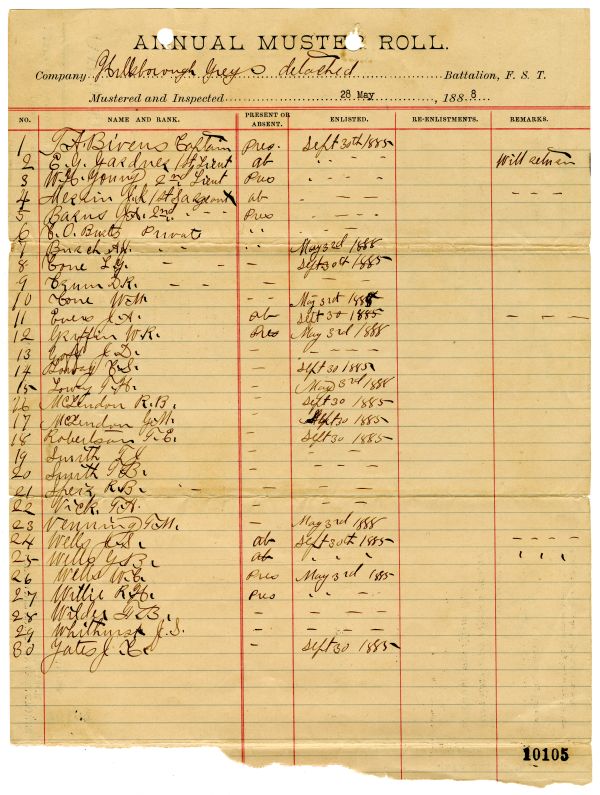 ANNUAL MUSTER ROLL.
Company Hillsborough Greys detached Battalion, F. S. T.
Mustered and Inspected 28 May, 1888.
NO. NAME AND RANK. PRESENT OR ABSENT. ENLISTED. RE-ENLISTMENTS. REMARKS.
1 T. A. Bivens Captain Pres. Sept 30th 1885
2 E. G. Gardner 1st Lieut ab " " " "
3 W. C. Young 2nd Lieut Pres " - - -
4 1st Sargeant ab - - - - - - -
5 2nd " " Pres - - - -
6 C. O. Butts Privat " "
7 Busch " May 3rd 1888
8 Cone L. G. - - - Sept 30th 1885
9 - - - - - -
10 Cone W. M. " May 3rd 1885
11 Evers J. A. ab Sept 30 1885 - - -
12 Griffin W. R. Pres May 3rd 1888
13 J. D. - - - - -
14 - Sept 30 1885
15 Lowry T. H. - May 3rd 1888
16 McLendon R. B. " Sept 30 1885
17 McLendon G. M. - Sept 30 1885
18 Robertson T. E. - Sept 30 1885
19 Smith - - - -
20 Smith T. B. - - - -
21 R. B. " - - - - -
22 Vick T. A. - - - -
23 Venning T. M. - May 3rd 1888
24 Wells J. S. ab Sept 30th 1885 - - - -
25 Wells G. B. ab " " " " " "
26 Wells W. C. Pres May 3rd 1885
27 Willie R. H. Pres " " - -
28 Wilder G. B. - - - -
29 Whithurst J. S. - - - -
30 Yates J. - Sept 30 1885
10105